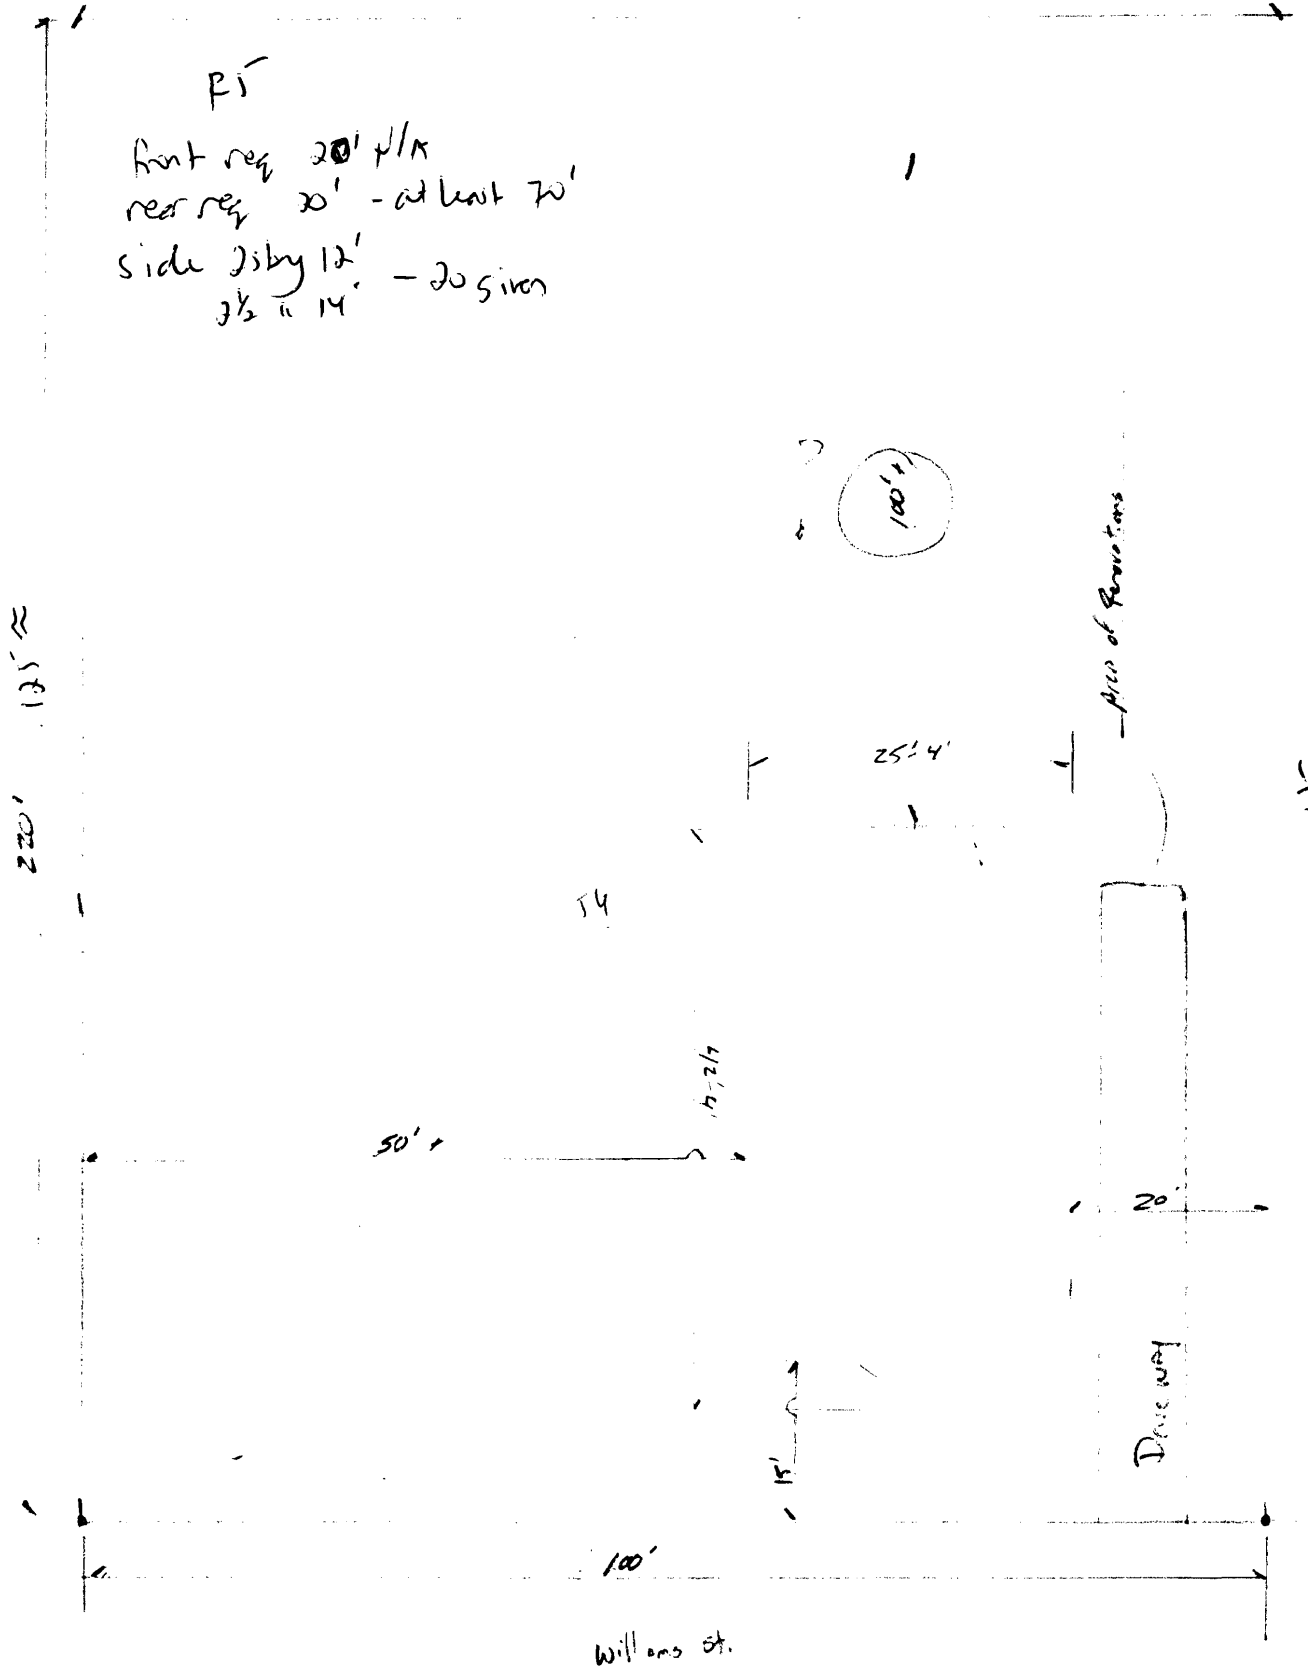 R5
front req 20' N/A
rear req 20' - at least 70'
side 2stry 12'
2½ " 14' - 20 given
100'+
Area of Renovations
125' ≈
220'
25'-4'
54
50' +
20'
15'
Drive way
100'
Williams St.